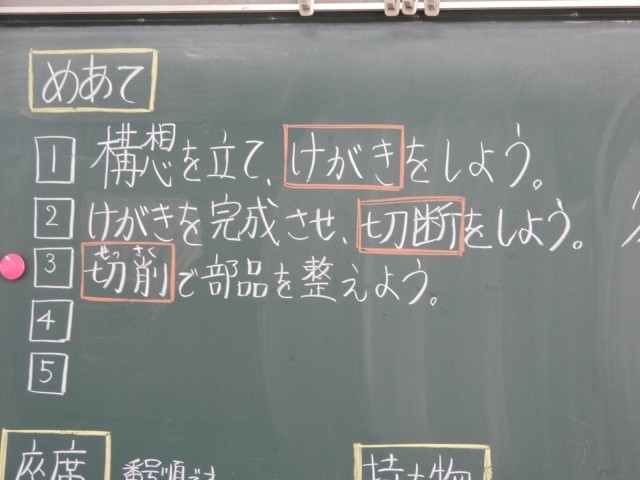 めあて
1 構想を立て、けがきをしよう。
2 けがきを完成させ、切断をしよう。
せっさく
3 切削で部品を整えよう。
4
5
座席 番号順です 持ち物